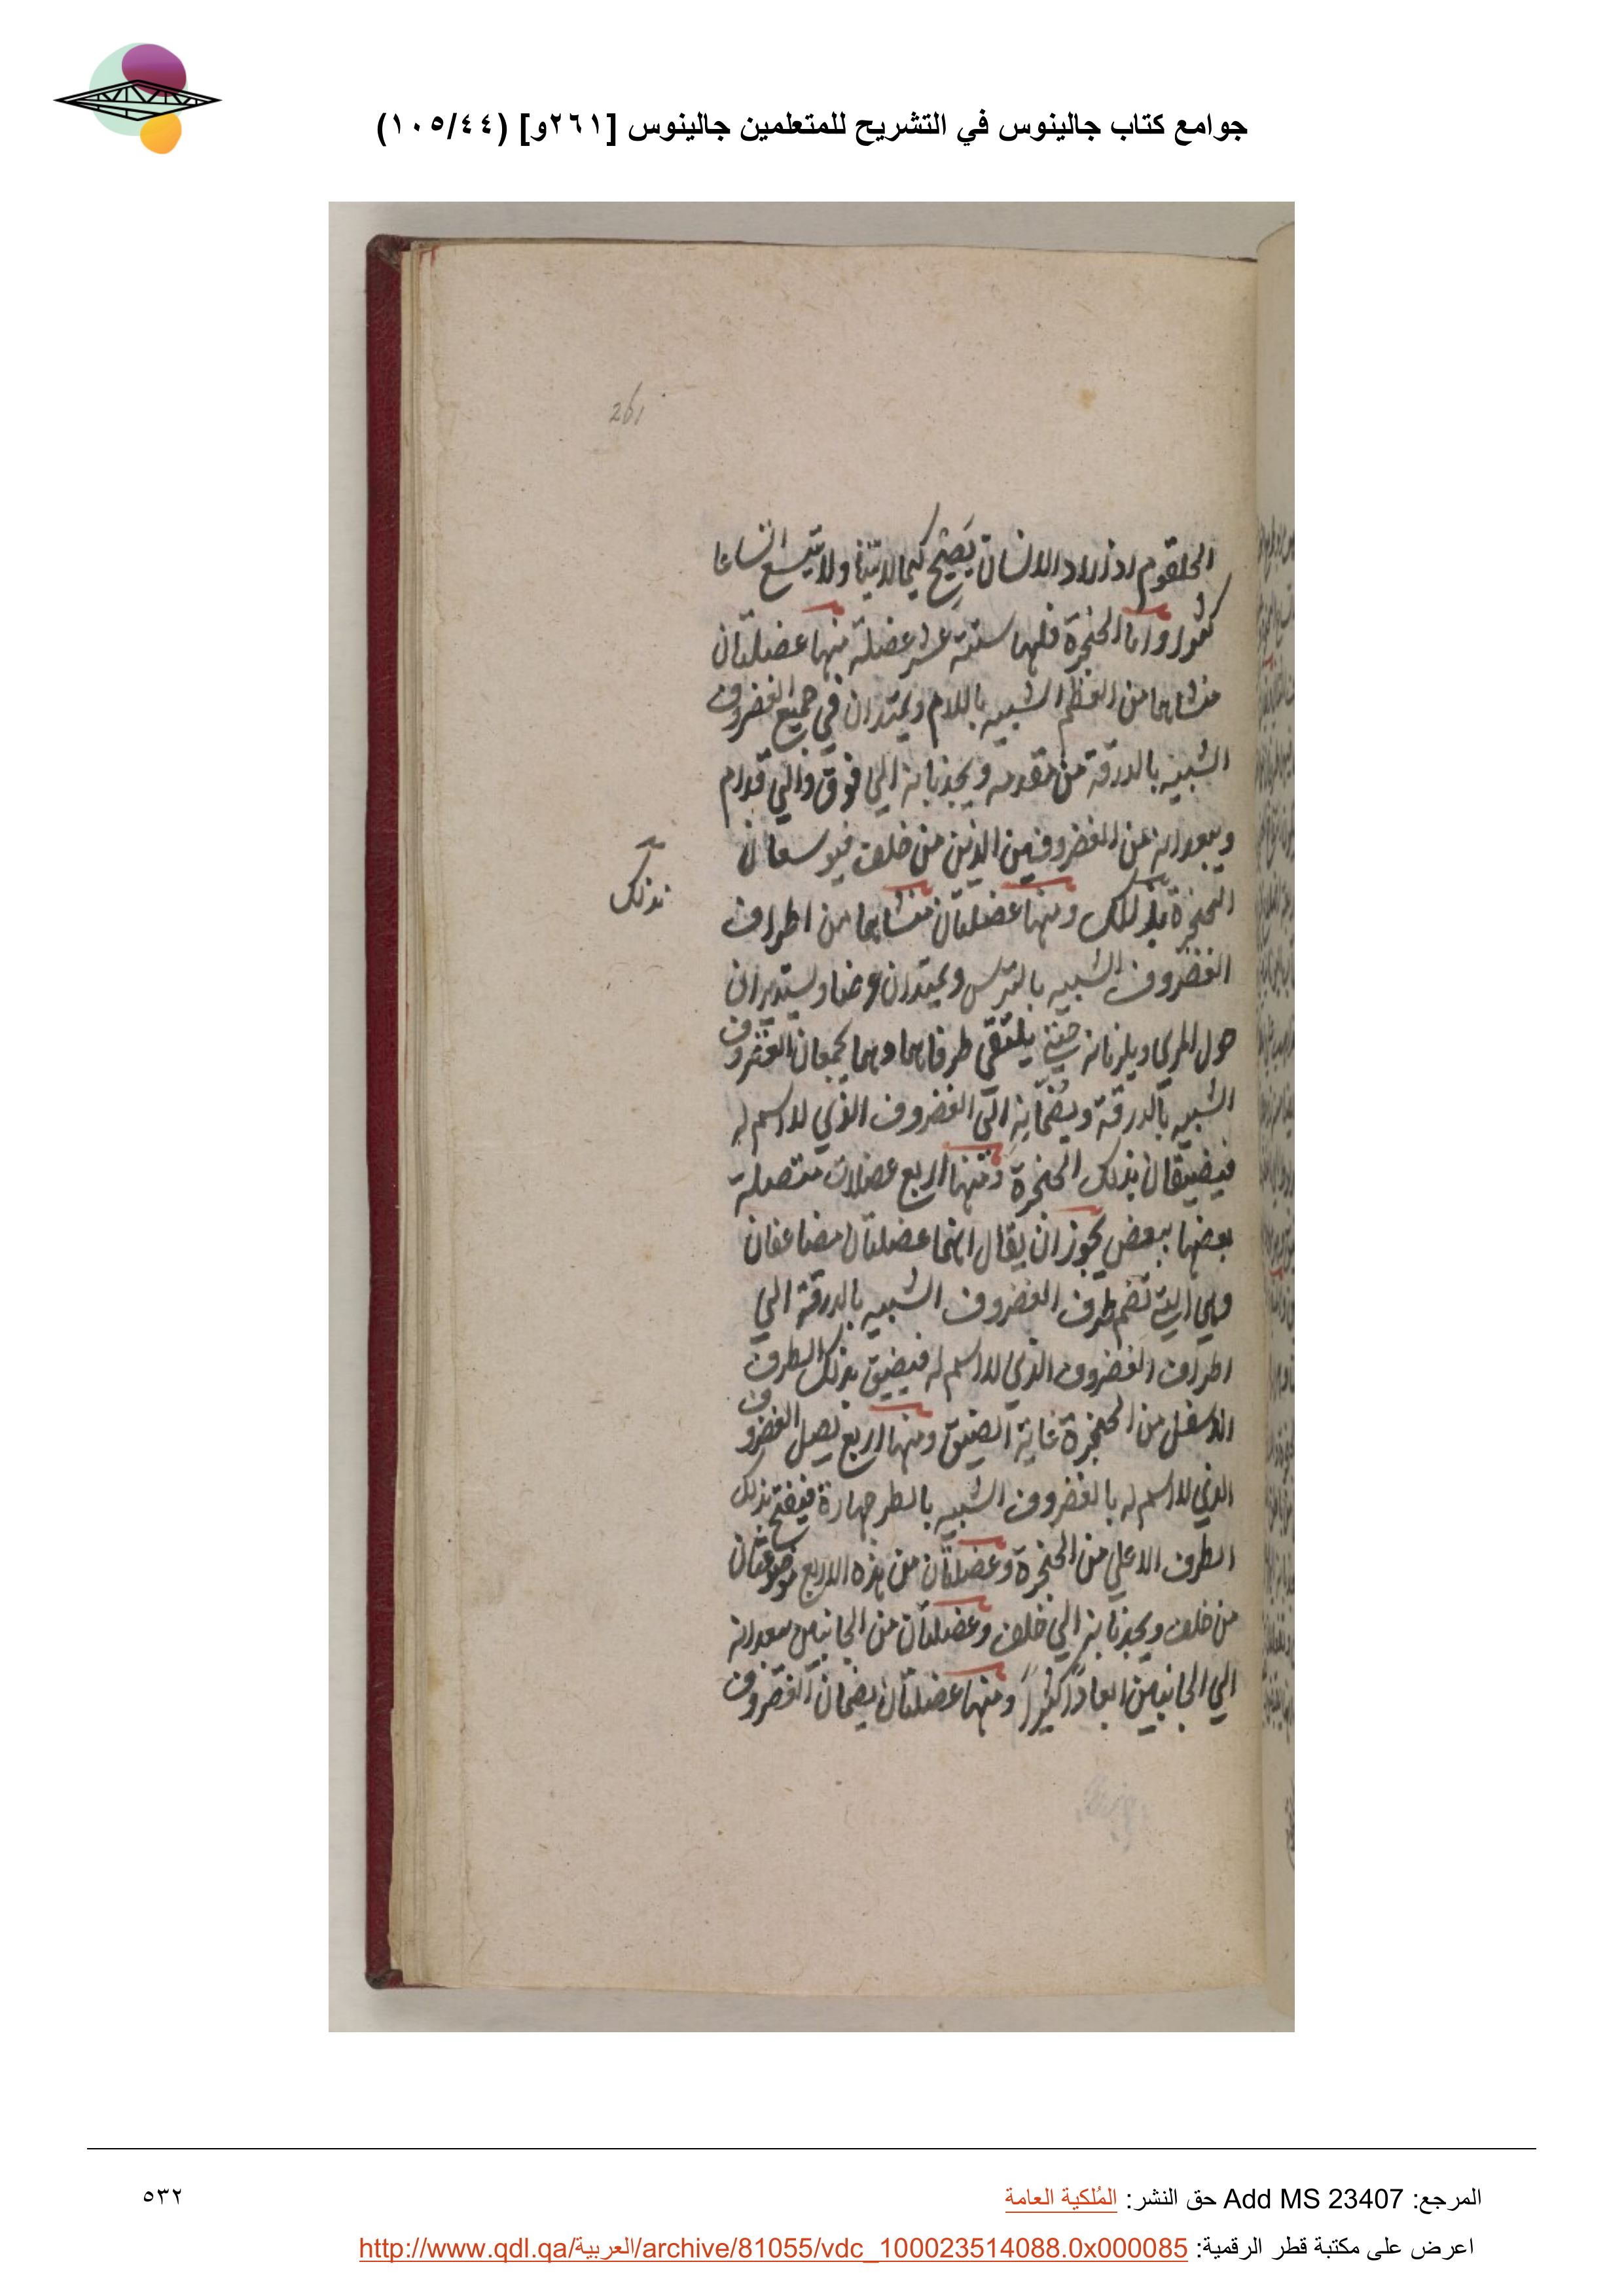 جوامع كتاب جالينوس في التشريح للمتعلمين جالينوس [٢٦١و] (١٠٥/٤٤)
261
الحلقوم اذا اراد الانسان يصيح كيما لا ينثنا ولا يتسع اتساعا
كثيرا واما الحنجرة فلها ستة عشر عضلة منها عضلتان
منشاهما من العظم الشبيه باللام ويمتدان في جميع الغضروف
الشبيه بالدرقة من مقدمه ويجذبانه الي فوق والي قدام
ويبعدانه عن الغضروفين الذين من خلف فيوسعان
الحنجرة بذلك ومنها عضلتان منشاهما من اطراف
بذلك
الغضروف الشبيه بالترس ويمتدان عرضا ويستديران
حول المري ويلزمانه حيني يلتقي طرفاهما وهما يجمعان الغضروف
الشبيه بالدرقة ويضمانه الي الغضروف الذي لا اسم له
فيضيقان بذلك الحنجرة ومنها اربع عضلات متصلة
بعضها ببعض يجوز ان يقال انهما عضلتان مضاعفتان
وهي اربعة تضم طرف الغضروف الشبيه بالدرقة الي
اطراف الغضروف الذي لا اسم له فيضيق بذلك الطرف
الاسفل من الحنجرة غاية الضيق ومنها اربع تصل الغضروف
الذي لا اسم له بالغضروف الشبيه بالطرجهارة فيفتح بذلك
الطرف الاعلي من الحنجرة وعضلتان من هذه الاربع موضوعتان
من خلف ويجذبانه الي خلف وعضلتان من الجانبين يبعدانه
الي الجانبين ابعادًا كثيرًا ومنها عضلتان يضمان الغضروف
المرجع: Add MS 23407 حق النشر: المُلكية العامة
٥٣٢
اعرض على مكتبة قطر الرقمية: http://www.qdl.qa/العربية/archive/81055/vdc_100023514088.0x000085